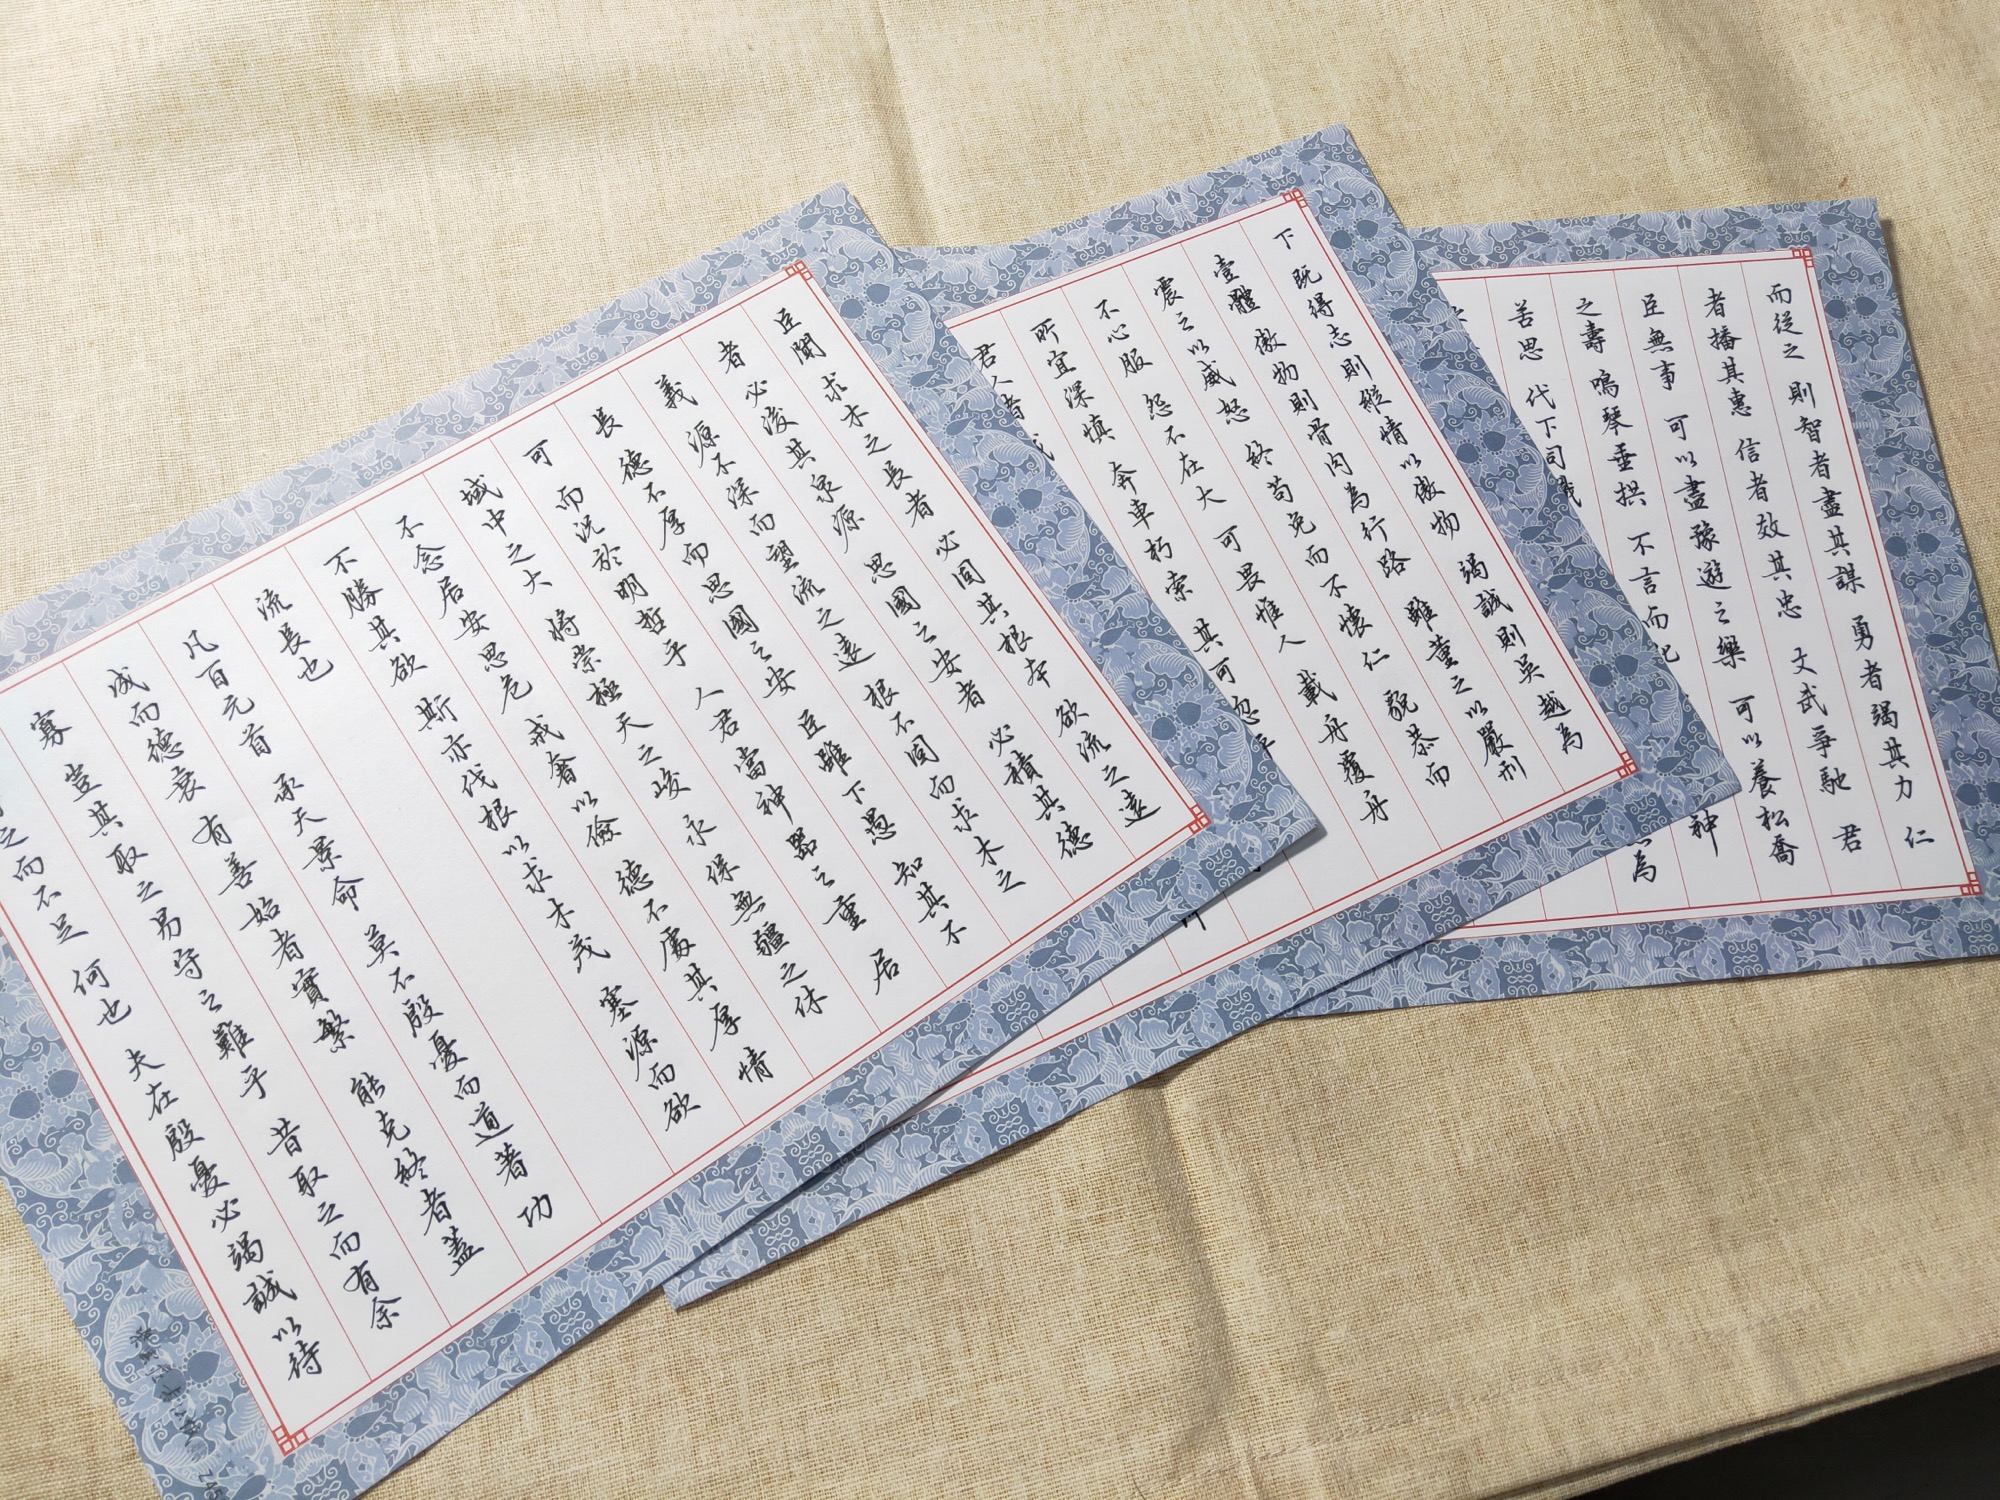 臣聞求木之長者必固其根本欲流之遠
者必浚其泉源思國之安者必積其德
義源不深而望流之遠根不固而求木之
長德不厚而思國之安臣雖下愚知其不
可而況於明哲乎人君當神器之重居
域中之大將崇極天之峻永保無疆之休
不念居安思危戒奢以儉德不處其厚情
不勝其欲斯亦伐根以求木茂塞源而欲
流長也
凡百元首承天景命莫不殷憂而道著功
成而德衰有善始者實繁能克終者蓋
寡豈其取之易守之難乎昔取之而有余
之而不足何也夫在殷憂必竭誠以待
下既得志則縱情以傲物竭誠則吳越為
壹體傲物則骨肉為行路雖董之以嚴刑
震之以威怒終苟免而不懷仁貌恭而
不心服怨不在大可畏惟人載舟覆舟
所宜深慎奔車朽索其可忽乎
君人者
而從之則智者盡其謀勇者竭其力仁
者播其惠信者效其忠文武爭馳君
臣無事可以盡豫遊之樂可以養松喬
之壽鳴琴垂拱不言而化神
苦思代下司為